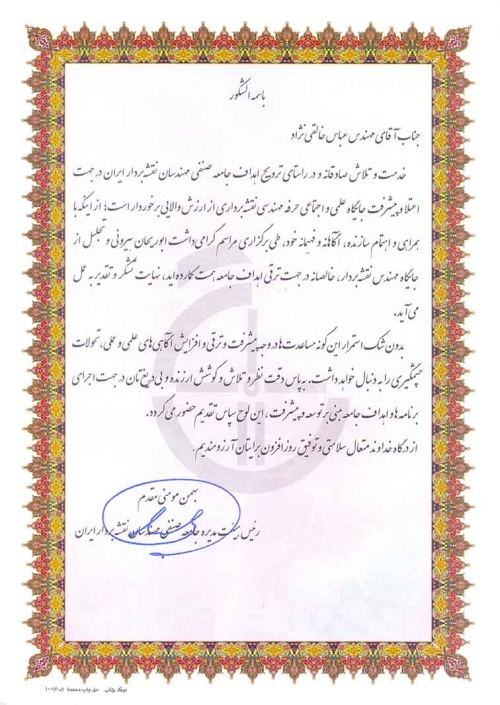 باسمه الشکور
جناب آقای مهندس عباس خالقی نژاد
خدمت و تلاش صادقانه و در راستای ترویج اهداف جامعه صنفی مهندسان نقشه بردار ایران در جهت
اعتلا و پیشرفت جایگاه علمی و اجتماعی حرفه مهندسی نقشه برداری از ارزش والایی برخوردار است؛ از اینکه با
همراهی و اهتمام سازنده، آگاهانه و فهیمانه خود، طی برگزاری مراسم گرامی داشت ابوریحان بیرونی و تجلیل از
جایگاه مهندس نقشه بردار، خالصانه در جهت ترقی اهداف جامعه همت گمارده اید، نهایت تشکر و تقدیر به عمل
می آید.
بدون شک استمرار این گونه مساعدت ها در وجه پیشرفت و ترقی و افزایش آگاهی های علمی و عملی، تحولات
چشمگیری را به دنبال خواهد داشت. به پاس دقت نظر و تلاش و کوشش ارزنده و بی دریغ تان در جهت اجرای
برنامه ها و اهداف جامعه مبنی بر توسعه و پیشرفت، این لوح سپاس تقدیم حضور می گردد.
از درگاه خداوند متعال سلامتی و توفیق روز افزون برایتان آرزومندیم.
بهمن مومنی مقدم
رئیس هیئت مدیره جامعه صنفی مهندسان نقشه بردار ایران